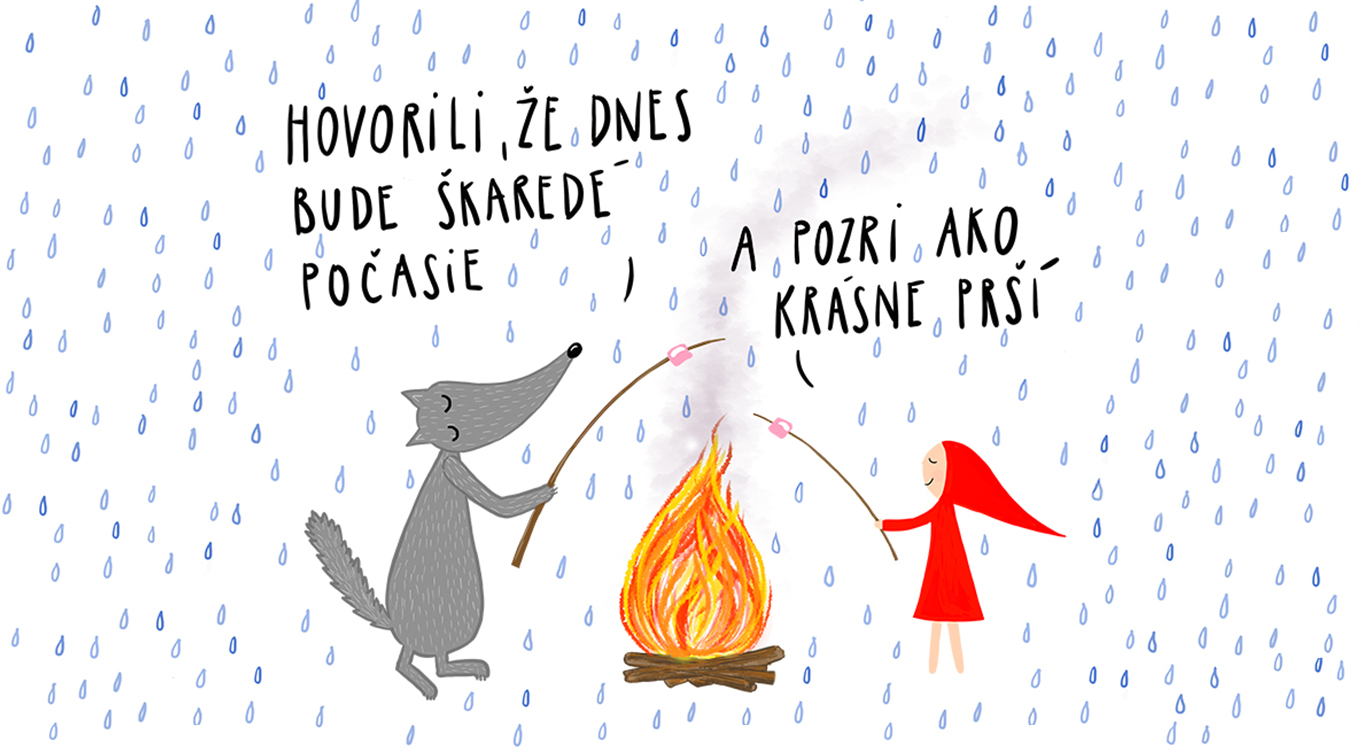 HOVORiLi, ŽE DNES
BUDE ŠKAREDÉ
POČASiE
A POZRi AKO
KRÁSNE PRŠÍ